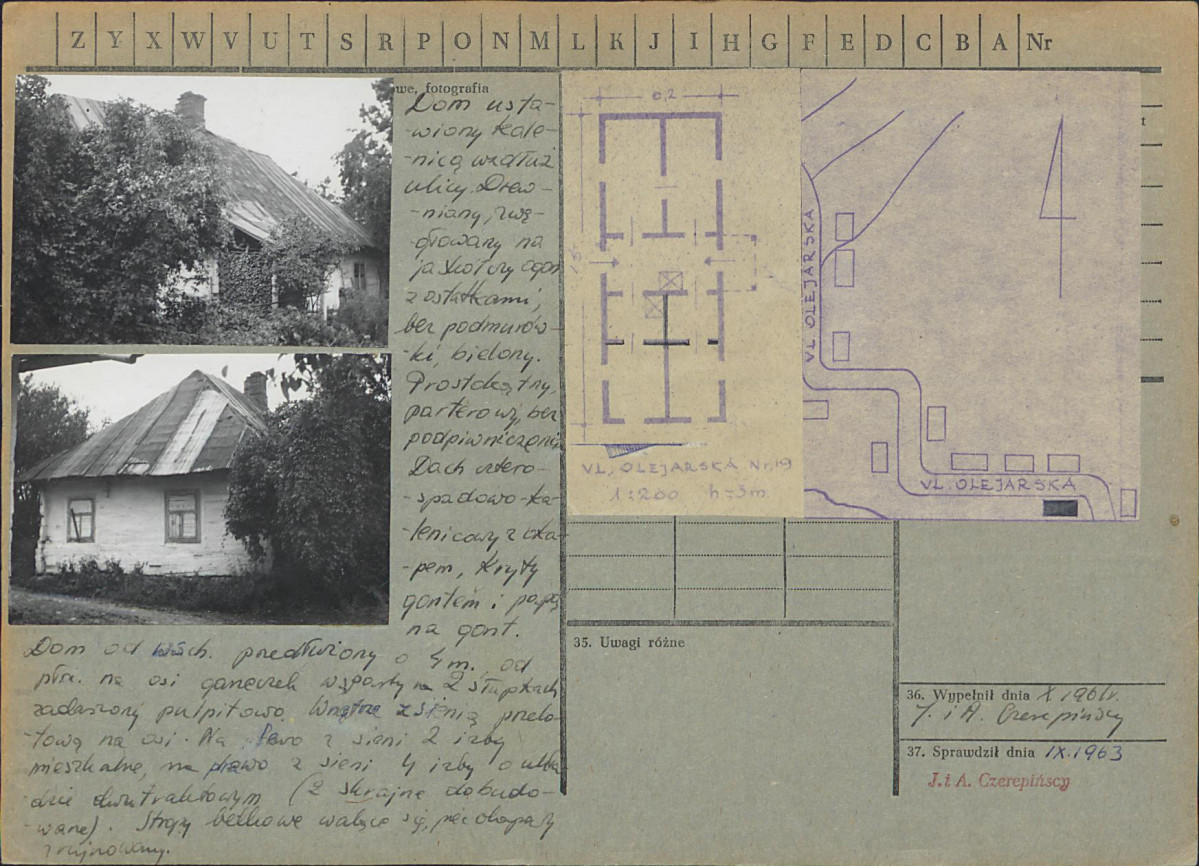 Z Y X W V U T S R P O N M L K J I H G F E D C B A Nr
we, fotografia
Dom usta-
-wiony kale-
-nicą wzdłuż
ulicy. Drew-
-niany, zwę-
-głowany na
jaskółczy ogon
z ostatkami,
bez podmurów-
-ki, bielony.
Prostokątny,
parterowy, bez
podpiwniczenia.
Dach cztero-
-spadowo-ka-
-lenicowy z oka-
-pem, kryty
gontem i papą
na gont.
Dom od wsch. przedłużony o 4 m. od
płn. na osi ganeczek wsparty na 2 słupkach
zadaszony pulpitowo. Wnętrze z sienią przelo-
-tową na osi. Na lewo z sieni 2 izby
mieszkalne, na prawo z sieni 4 izby o ukła-
dzie dwutraktowym (2 skrajne dobudo-
-wane). Stropy belkowe walące się, piec okapowy
zrujnowany.
6,2
15
UL. OLEJARSKA Nr. 19
1:200 h=3m
UL. OLEJARSKA
UL. OLEJARSKA
t
35. Uwagi różne
36. Wypełnił dnia X 1961r.
J. i A. Czerepińscy
37. Sprawdził dnia IX.1963
J. i A. Czerepińscy